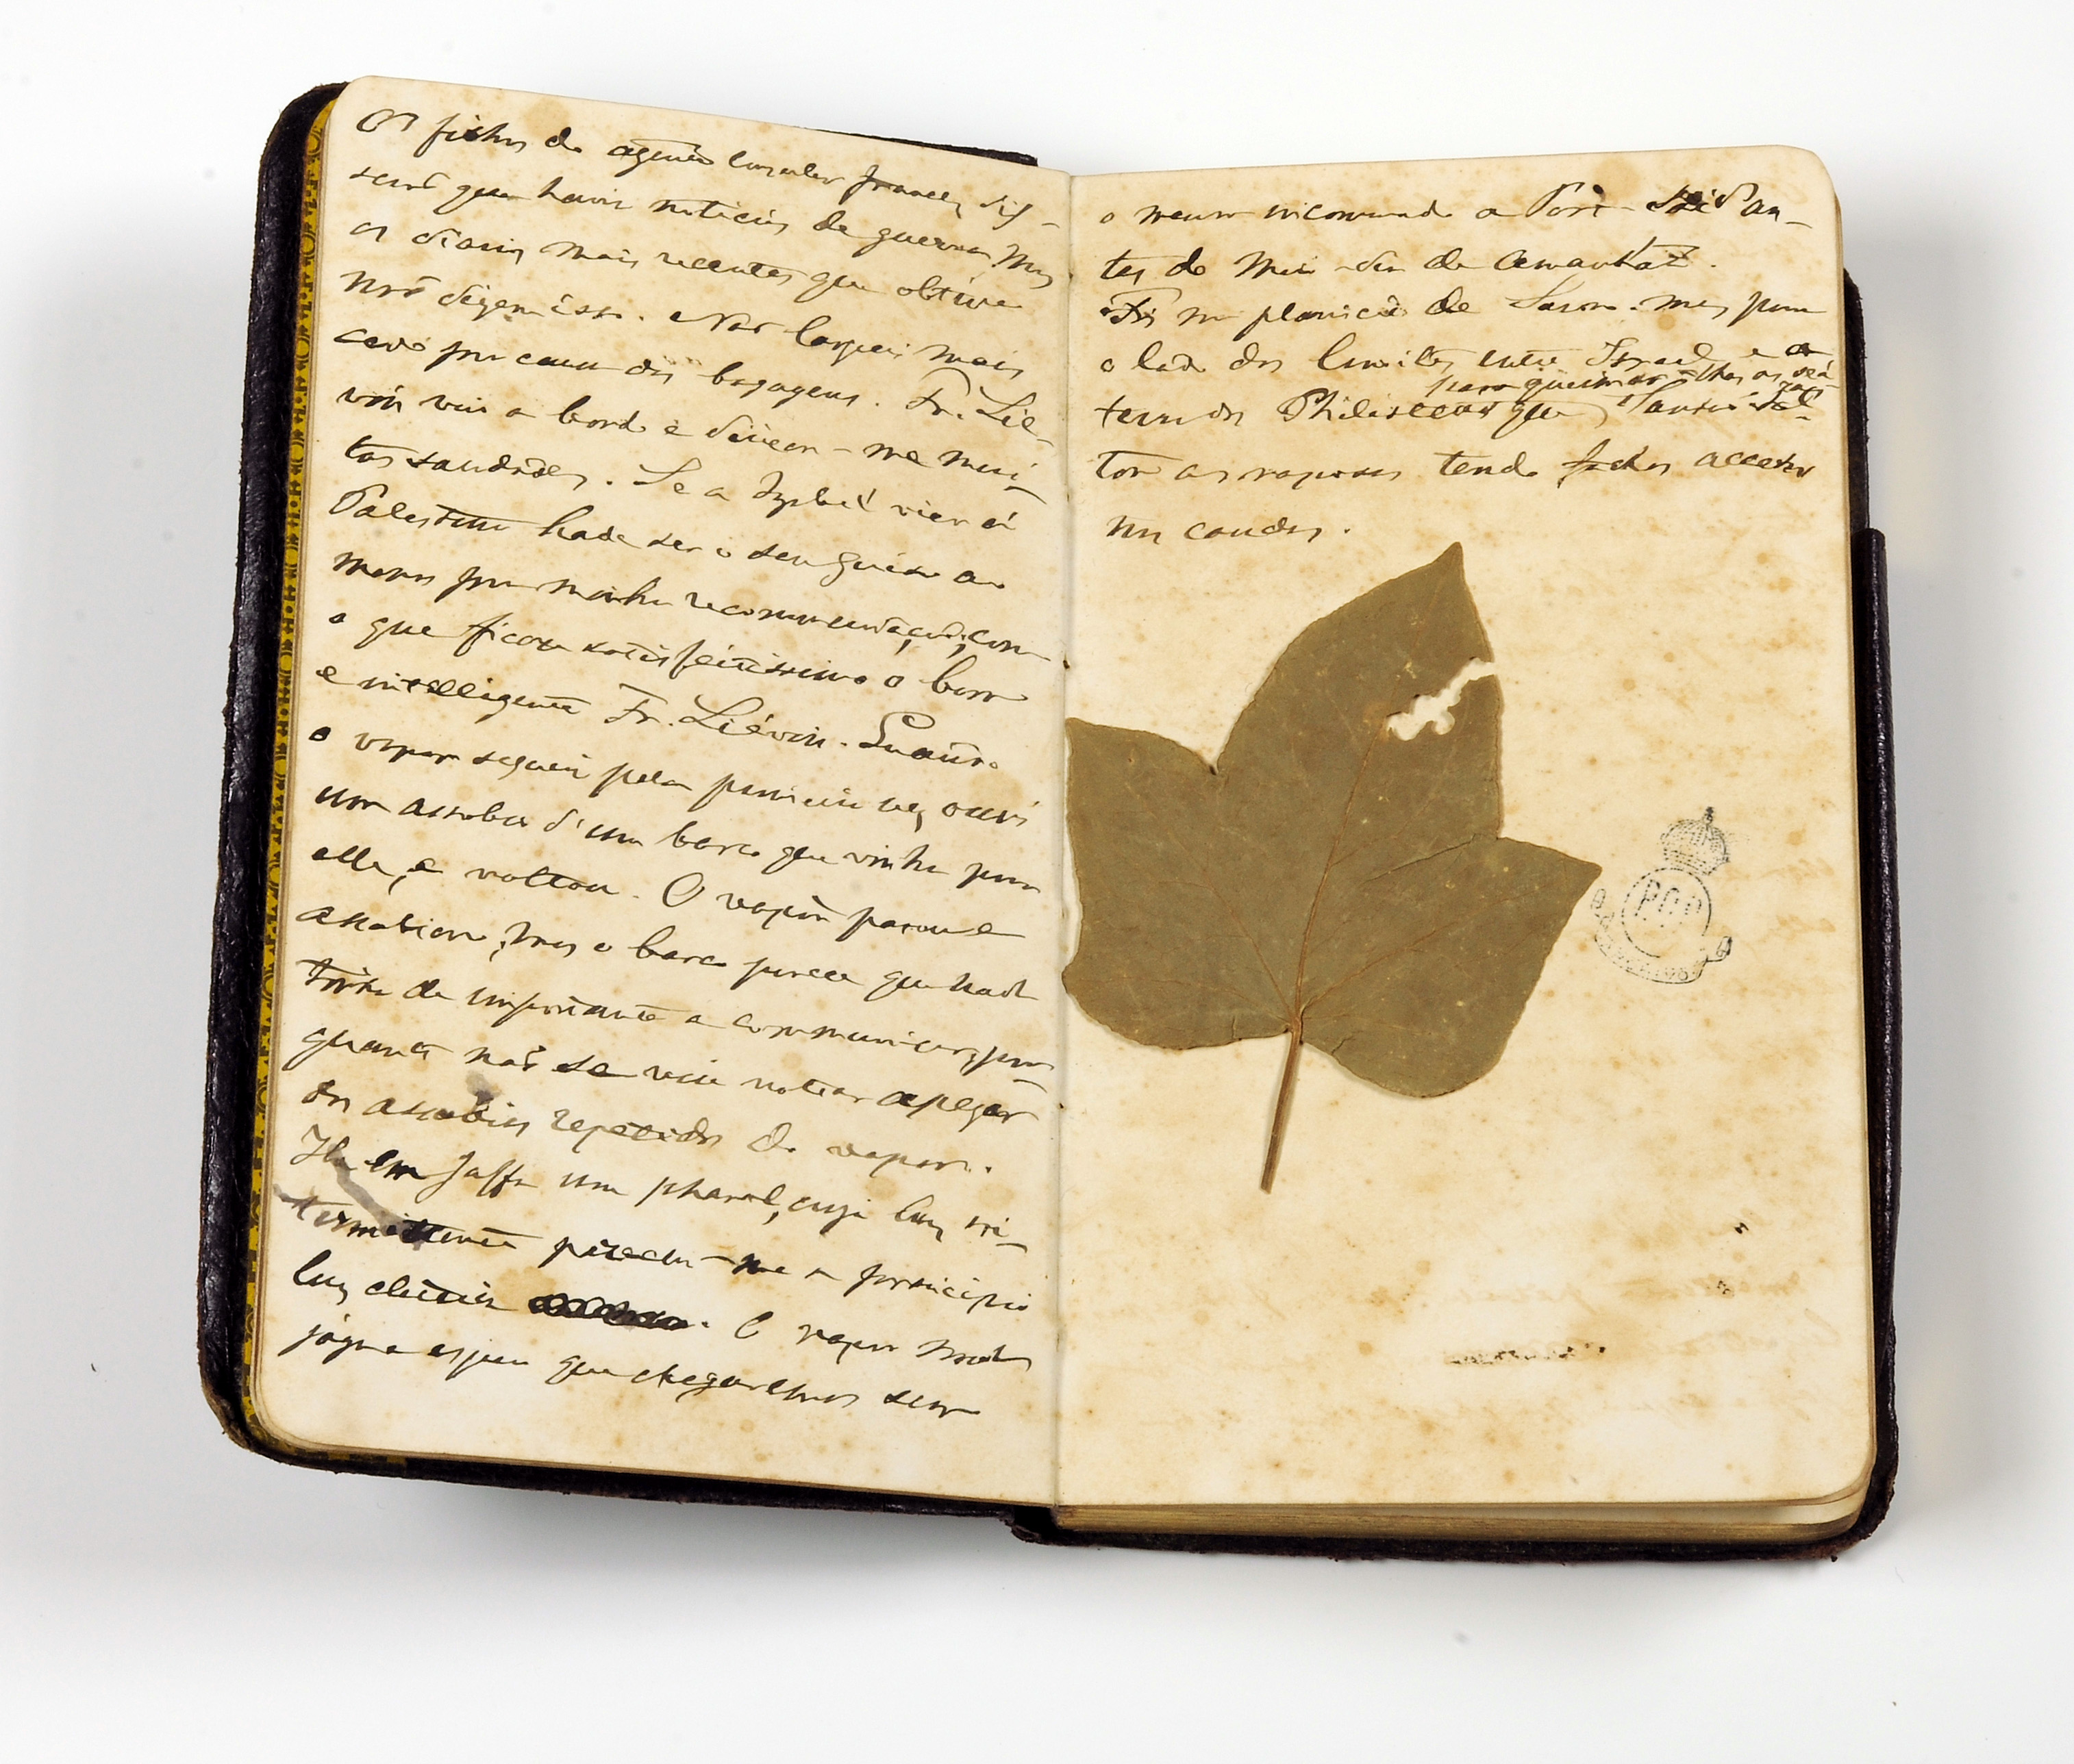 Os filhos do agente consular francez dis-
serão que havia noticias de guerra, mas
os diarios mais recentes que obtive
não dizem isso. Não larguei mais
cedo por causa das bagagens. Fr. Lié-
vin veiu a bordo e disse-me mui-
tas saudades. Se a Izabel vier á
Palestina hade ser o seu guia ao
menos por minha recommendação, com
o que ficou satisfeitissimo o bom
e intelligente Fr. Liévin. Quando
o vapor seguiu pela primeira vez ouvi
um assobio d'um barco que vinha para
elle, e voltou. O vapor parou e
assobiou, mas o barco parece que nada
tinha de importante a communicar, por
quanto não se viu notar apezar
dos assobios repetidos do vapor.
Ha em Jaffa um pharol, cuja luz in-
termittente pareceu-me a principio
luz electrica. O vapor não
joga e espero que chegaremos sem
o menor incommodo a Port-Said an-
tes do meio-dia de amanhã.
Foi na planicie de Saron, mas para
o lado dos limites entre Israel e a
terra dos Philisteus que, para queimar-lhes as seáras, Sansão sol-
tou as raposas tendo fachos accesos
nas caudas.
P II